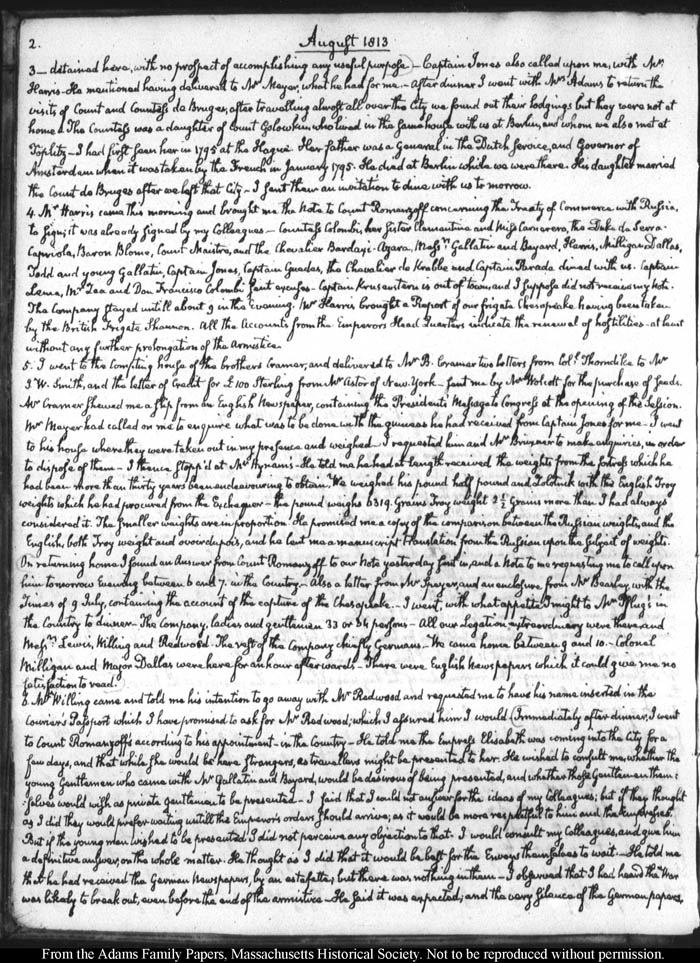 2.
August 1813
3 — detained here, with no prospect of accomplishing any useful purpose) — Captain Jones also called upon me, with Mr.
Harris. He mentioned having delivered to Mr. Meyer, what he had for me. — After dinner I went with Mrs. Adams to return the
visits of Count and Countess de Bruges; after travelling almost all over the City we found out their lodgings but they were not at
home. The Countess was a daughter of Count Golowkin, who lived in the same house with us at Berlin, and whom we also met at
Töplitz — I had first seen her in 1795 at the Hague. Her father was a General in the Dutch service, and Governor of
Amsterdam when it was taken by the French in January 1795. He died at Berlin while we were there. His daughter married
the Count de Bruges after we left that City — I sent them an invitation to dine with us to morrow.
4. Mr. Harris came this morning and brought me the Note to Count Romanzoff concerning the Treaty of Commerce with Russia,
to sign; it was already signed by my Colleagues — Countess Colombi, her Sister Clementina and Miss Camarero, the Duke de Serra-
Capriola, Baron Blome, Count Maistre, and the Chevalier Bardaxi-Azara, Messrs. Gallatin and Bayard, Harris, Milligan, Dallas,
Todd and young Gallatin, Captain Jones, Captain Guedes, the Chevalier de Krabbe and Captain Parada dined with us. Captain
Lema, Mr. Zea and Don Francisco Colombi sent excuses — Captain Krusenstern is out of town, and I suppose did not receive my Note.
The Company stayed untill about 9 in the Evening. Mr. Harris brought a Report of our frigate Chesapeake having been taken
by the British Frigate Shannon. All the Accounts from the Emperors Head Quarters indicate the renewal of hostilities at least
without any further prolongation of the Armistice.
5. I went to the Compting house of the brothers Cramer, and delivered to Mr. B. Cramer two Letters from Coll. Thorndike to Mr.
J. W. Smith, and the letter of Credit for £100 Sterling from Mr. Astor of New York — sent me by Mr. Wolcott for the purchase of Seeds.
Mr. Cramer shewed me a slip from an English Newspaper, containing the Presidents Message to Congress at the opening of the Session.
Mr. Meyer had called on me to enquire what was to be done with the guineas he had received from Captain Jones for me — I went
to his house where they were taken out in my presence and weighed. I requested him and Mr. Bruxner to make enquiries, in order
to dispose of them — I thence stopp'd at Mr. Hynam's — He told me he had at length received the weights from the fortress which he
had been more than thirty years been endeavouring to obtain. We weighed his pound half pound and Zolotnik with the English Troy
weights which he had procured from the Exchequer — the pound weighs 6319. Grains Troy weight 3½ Grains more than I had always
considered it. The smaller weights are in proportion. He promised me a copy of the comparison between the Russian weights, and the
English, both Troy weight and avoirdupois, and he lent me a manuscript translation from the Russian upon the subject of weights.
On returning home I found an Answer from Count Romanzoff to our Note yesterday sent in, and a Note to me requesting me to call upon
him tomorrow Evening between 6 and 7. in the Country — Also a letter from Mr. Speyer, and an enclosure from Mr. Beasley, with the
Times of 9 July, containing the account of the capture of the Chesapeake. — I went, with what appetite I might to Mr. Pflug's in
the Country to dinner — The Company, ladies and gentlemen 33 or 34 persons — All our Legation extraordinary were there, and
Messrs. Lewis, Willing and Redwood. The rest of the Company chiefly Germans — We came home between 9 and 10. — Colonel
Milligan and Major Dallas were here for an hour afterwards — There were English Newspapers which it could give me no
satisfaction to read.
6. Mr. Willing came and told me his intention to go away with Mr. Redwood and requested me to have his name inserted in the
Courier's Passport which I have promised to ask for Mr. Redwood; which I assured him I would (Immediately after dinner, I went
to Count Romanzoff's according to his appointment — in the Country — He told me the Empress Elizabeth was coming into the City for a
few days, and that while she would be here Strangers, as travellers might be presented to her. He wished to consult me, whether the
young Gentlemen who came with Mr. Gallatin and Bayard, would be desirous of being presented, and whether those Gentlemen them:
:selves would wish as private Gentlemen to be presented — I said that I could not answer for the ideas of my Colleagues; but if they thought
as I did they would prefer waiting untill the Emperor's orders should arrive; as it would be more respectful to him and the Empresses.
But if the young men wished to be presented I did not perceive any objection to that. I would consult my Colleagues, and give him
a definitive answer, on the whole matter. He thought as I did that it would be best for the Envoys themselves to wait — He told me
that he had received the German Newspapers, by an estafette; but there was nothing in them — I observed that I had heard the War
was likely to break out, even before the end of the armistice — He said it was expected; and the very silence of the German papers,
From the Adams Family Papers, Massachusetts Historical Society. Not to be reproduced without permission.